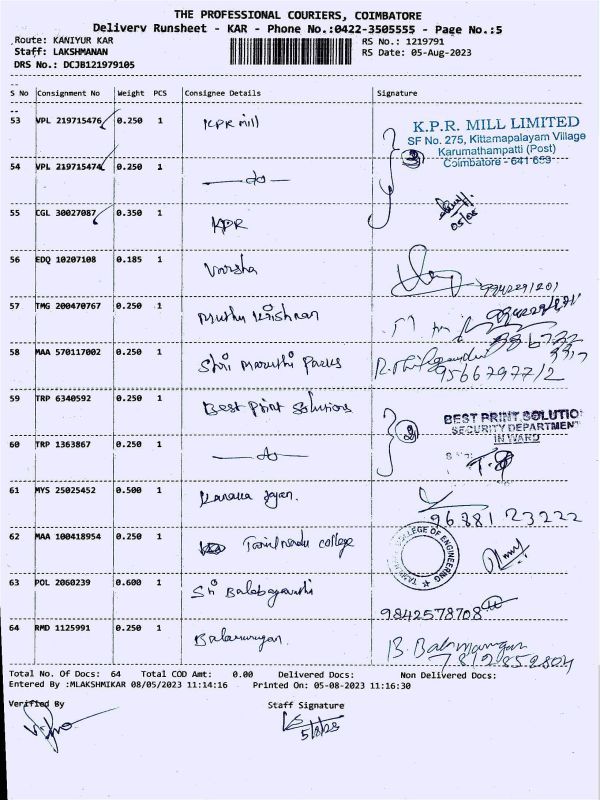 THE PROFESSIONAL COURIERS, COIMBATORE
Delivery Runsheet - KAR - Phone No.:0422-3505555 - Page No.:5
Route: KANIYUR KAR RS No.: 1219791
Staff: LAKSHMANAN RS Date: 05-Aug-2023
DRS No.: DCJB121979105
S No Consignment No Weight PCS Consignee Details Signature
53 VPL 219715476 0.250 1 KPR mill
K.P.R. MILL LIMITED
SF No. 275, Kittamapalayam Village
Karumathampatti (Post)
Coimbatore - 641 659
3
54 VPL 219715474 0.250 1 —do—
55 CGL 30027087 0.350 1 KPR
05/08
56 EDQ 10207108 0.185 1 Varsha
57 TMG 200470767 0.250 1 Muthu Krishnan
58 MAA 570117002 0.250 1 Shri Maruthi Packs
9566797712
59 TRP 6340592 0.250 1 Best Print Solutions
BEST PRINT SOLUTIO
SECURITY DEPARTMENT
INWARD
2
60 TRP 1363867 0.250 1 —do—
61 MYS 25025452 0.500 1
96881 23222
62 MAA 100418954 0.250 1 Tamilnadu college
COLLEGE OF ENGINEERING
63 POL 2060239 0.600 1 Sri
9842578708
64 RMD 1125991 0.250 1 Balamurugan
B. Balamurugan
7812852804
Total No. Of Docs: 64 Total COD Amt: 0.00 Delivered Docs: Non Delivered Docs:
Entered By :MLAKSHMIKAR 08/05/2023 11:14:16 Printed On: 05-08-2023 11:16:30
Verified By Staff Signature
5/8/23